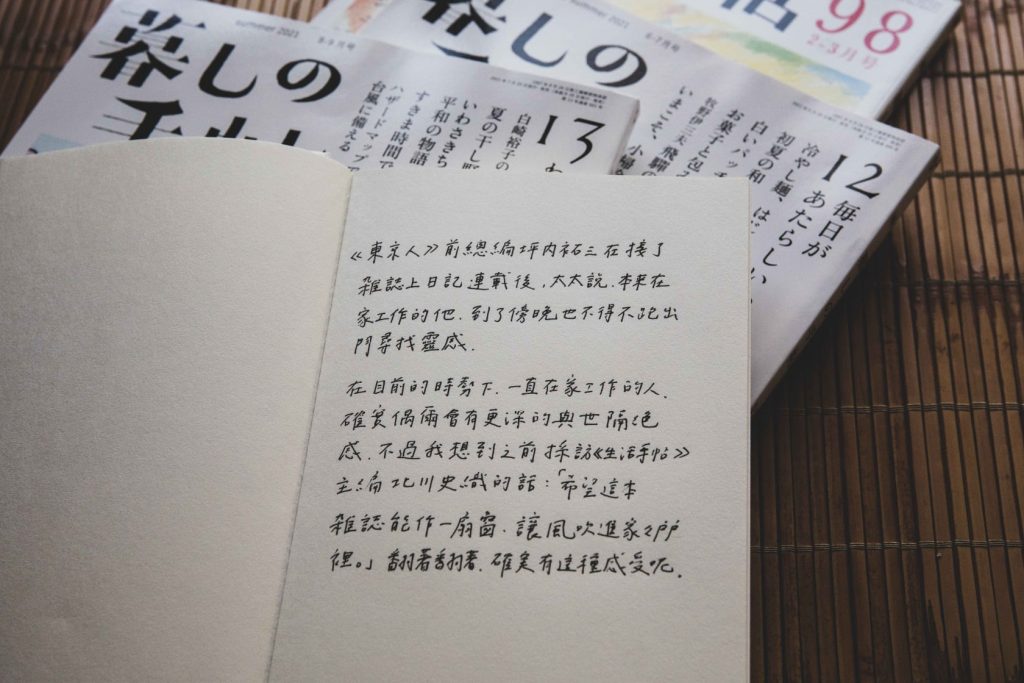 暮しの
summer 2021
8-9月号
13
白崎裕子の
夏の干し野
いわさきち
平和の物語
すきま時間で
ハザードマップで
台風に備える
暮しの
summer 2021
6-7月号
12
毎日が
あたらしい
冷やし麺、
初夏の和
白いパッチ
お菓子と包み
牧野伊三夫 飛騨の
いまこそ、小帰
帖
98
2-3月号
《東京人》前總編坪内祐三在接了
雜誌上日記連載後，太太說，本來在
家工作的他，到了傍晚也不得不跑出
門尋找靈感.
在目前的時勢下，一直在家工作的人，
確實偶爾會有更深的與世隔絕
感，不過我想到之前採訪《生活手帖》
主編北川史織的話：「希望這本
雜誌能作一扇窗，讓風吹進家々戶戶
裡。」翻著翻著，確實有這種感受呢.